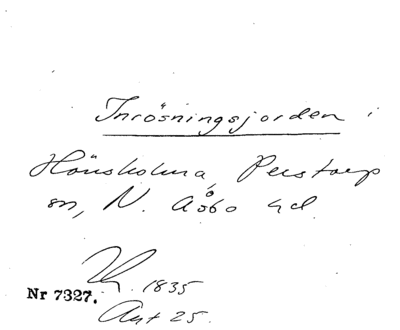 Inrösningsjorden i
Hönsholma, Perstorp
sn, N. Åsbo hd
1835
Nr 7327.
Akt 25.